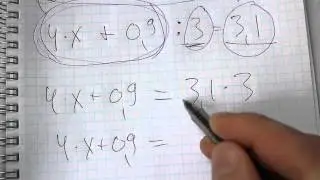 (4·x + 0,9) : 3 = 3,1
4·x + 0,9 = 3,1·3
4·x + 0,9 =